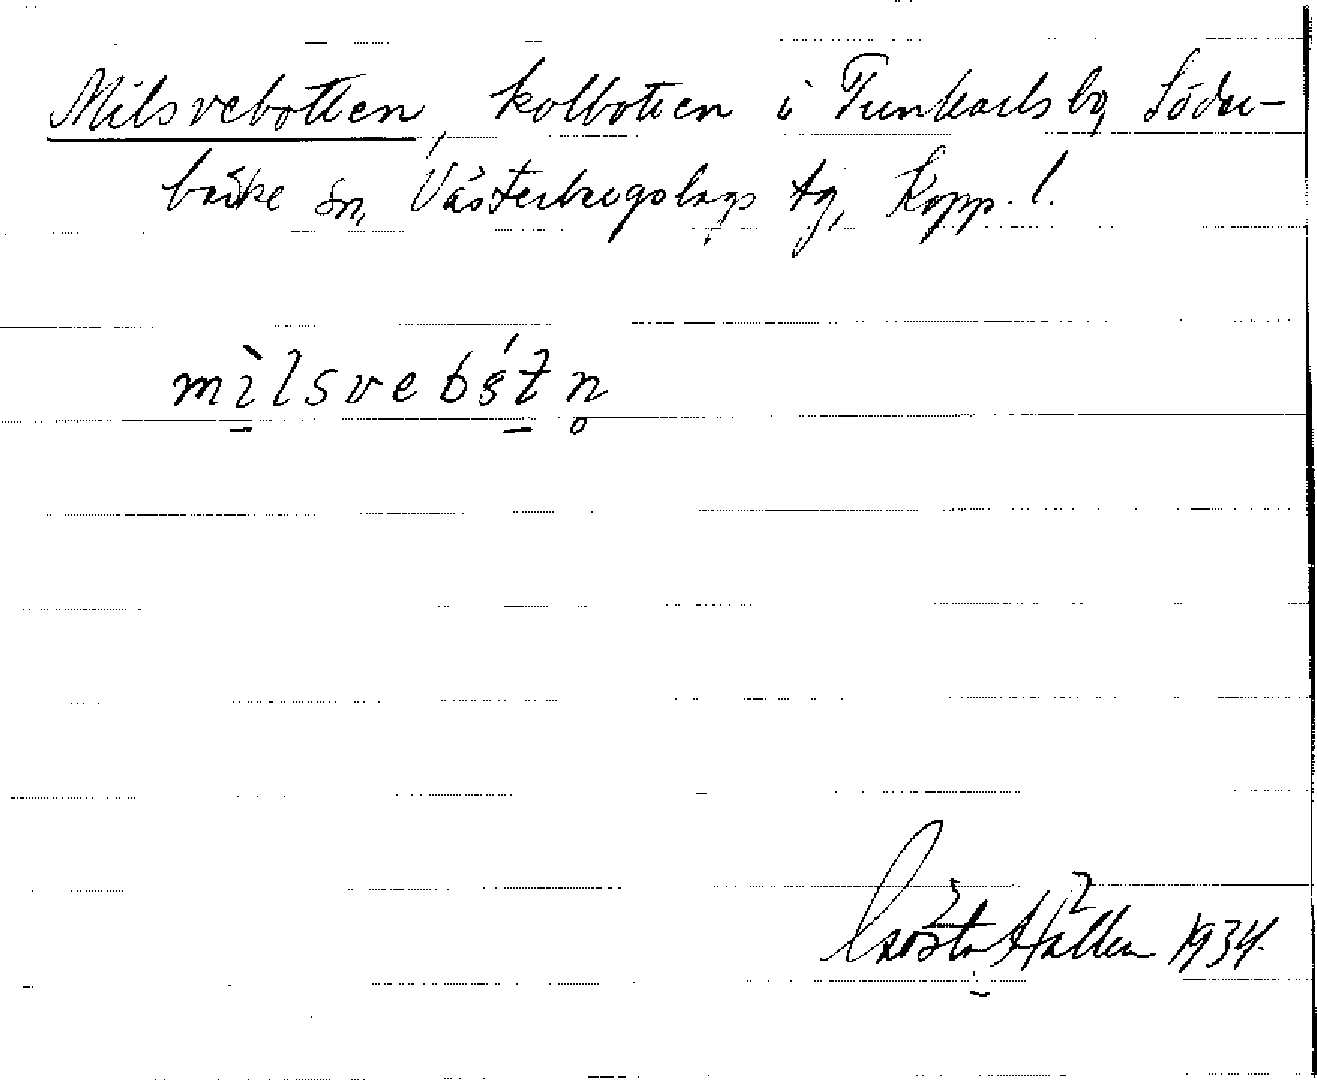 Milsvebotten, kolbotten i Tunkarlsbo Söder-
bärke sn, Västerbergslags tg, Kopp. l.
mìlsvebśt n̥
Gösta Hallen 1934.